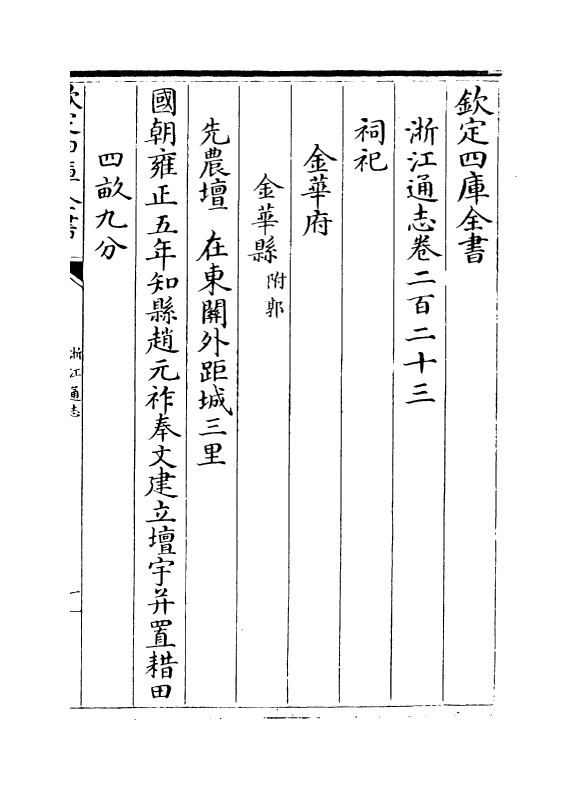 欽定四庫全書
浙江通志卷二百二十三
祠祀
金華府
金華縣附郭
先農壇 在東關外距城三里
國朝雍正五年知縣趙元祚奉文建立壇宇并置耤田
四畝九分
欽定四庫全書
浙江通志
一